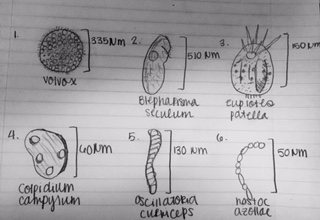 1.
335Nm
volvox
2.
510Nm
Blepharisma
seculum
3.
150Nm
euplotes
patella
4.
60Nm
Colpidium
campylum
5.
130Nm
oscillatoria
6.
50Nm
nostoc
azollae